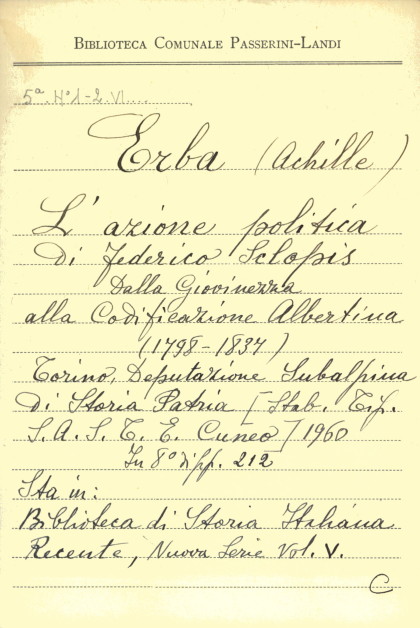 BIBLIOTECA COMUNALE PASSERINI-LANDI
5ª. Nº1-2. VI....
Erba (Achille)
L'azione politica
di Federico Sclopis
Dalla Giovinezza
alla Codificazione Albertina
(1798-1837)
Torino, Deputazione Subalpina
di Storia Patria [Stab. Tip.
S. A. S. T. E. Cuneo] 1960
In 8º di pp. 212
Sta in:
Biblioteca di Storia Italiana
Recente, Nuova Serie Vol. V.
C